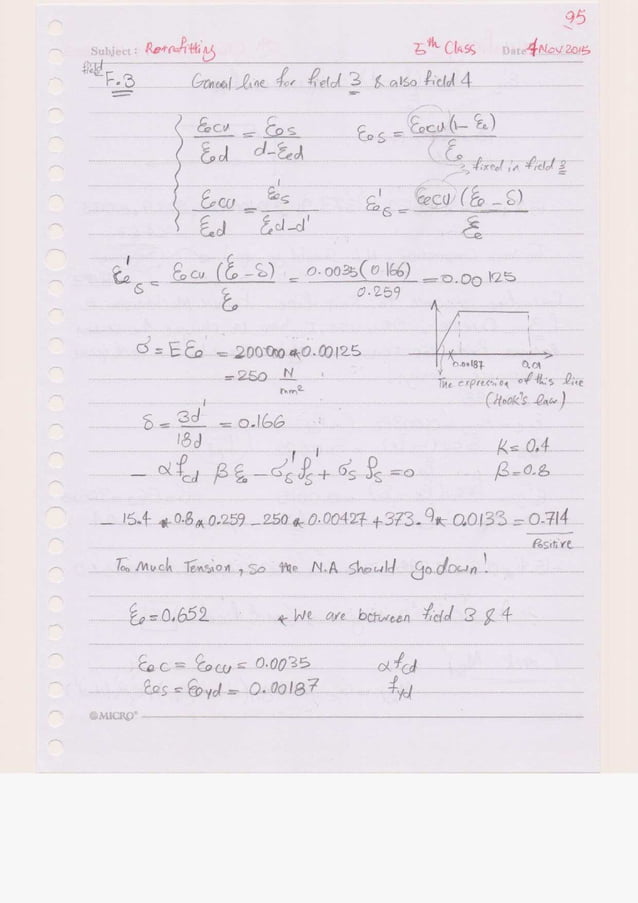 95
Subject : Retrofitting 5th Class Date 4 Nov 2015
field
F.3 General line for field 3 & also field 4
εcu / ξd = εs / (d-ξd) εs = εcu (1-ξ) / ξ
fixed in field 3
εcu / ξd = ε's / (ξd-d') ε's = εcu (ξ - δ) / ξ
ε's = εcu (ξ-δ) / ξ = 0.0035(0.166) / 0.259 = 0.00125
σ = E ε = 200000 * 0.00125
= 250 N/mm²
0.00187 0.01
The expression of this line
(Hook's law)
δ = 3d' / 18d = 0.166
K = 0.4
- α fcd β ξ - σ's ρ's + σs ρs = 0 β = 0.8
- 15.4 * 0.8 * 0.259 - 250 * 0.00427 + 373.9 * 0.0133 = 0.714
Positive
Too Much Tension, so the N.A should go down!
ξ = 0.652 * We are between field 3 & 4
εc = εcu = 0.0035 α fcd
εs = εyd = 0.00187 fyd
@MICRO®